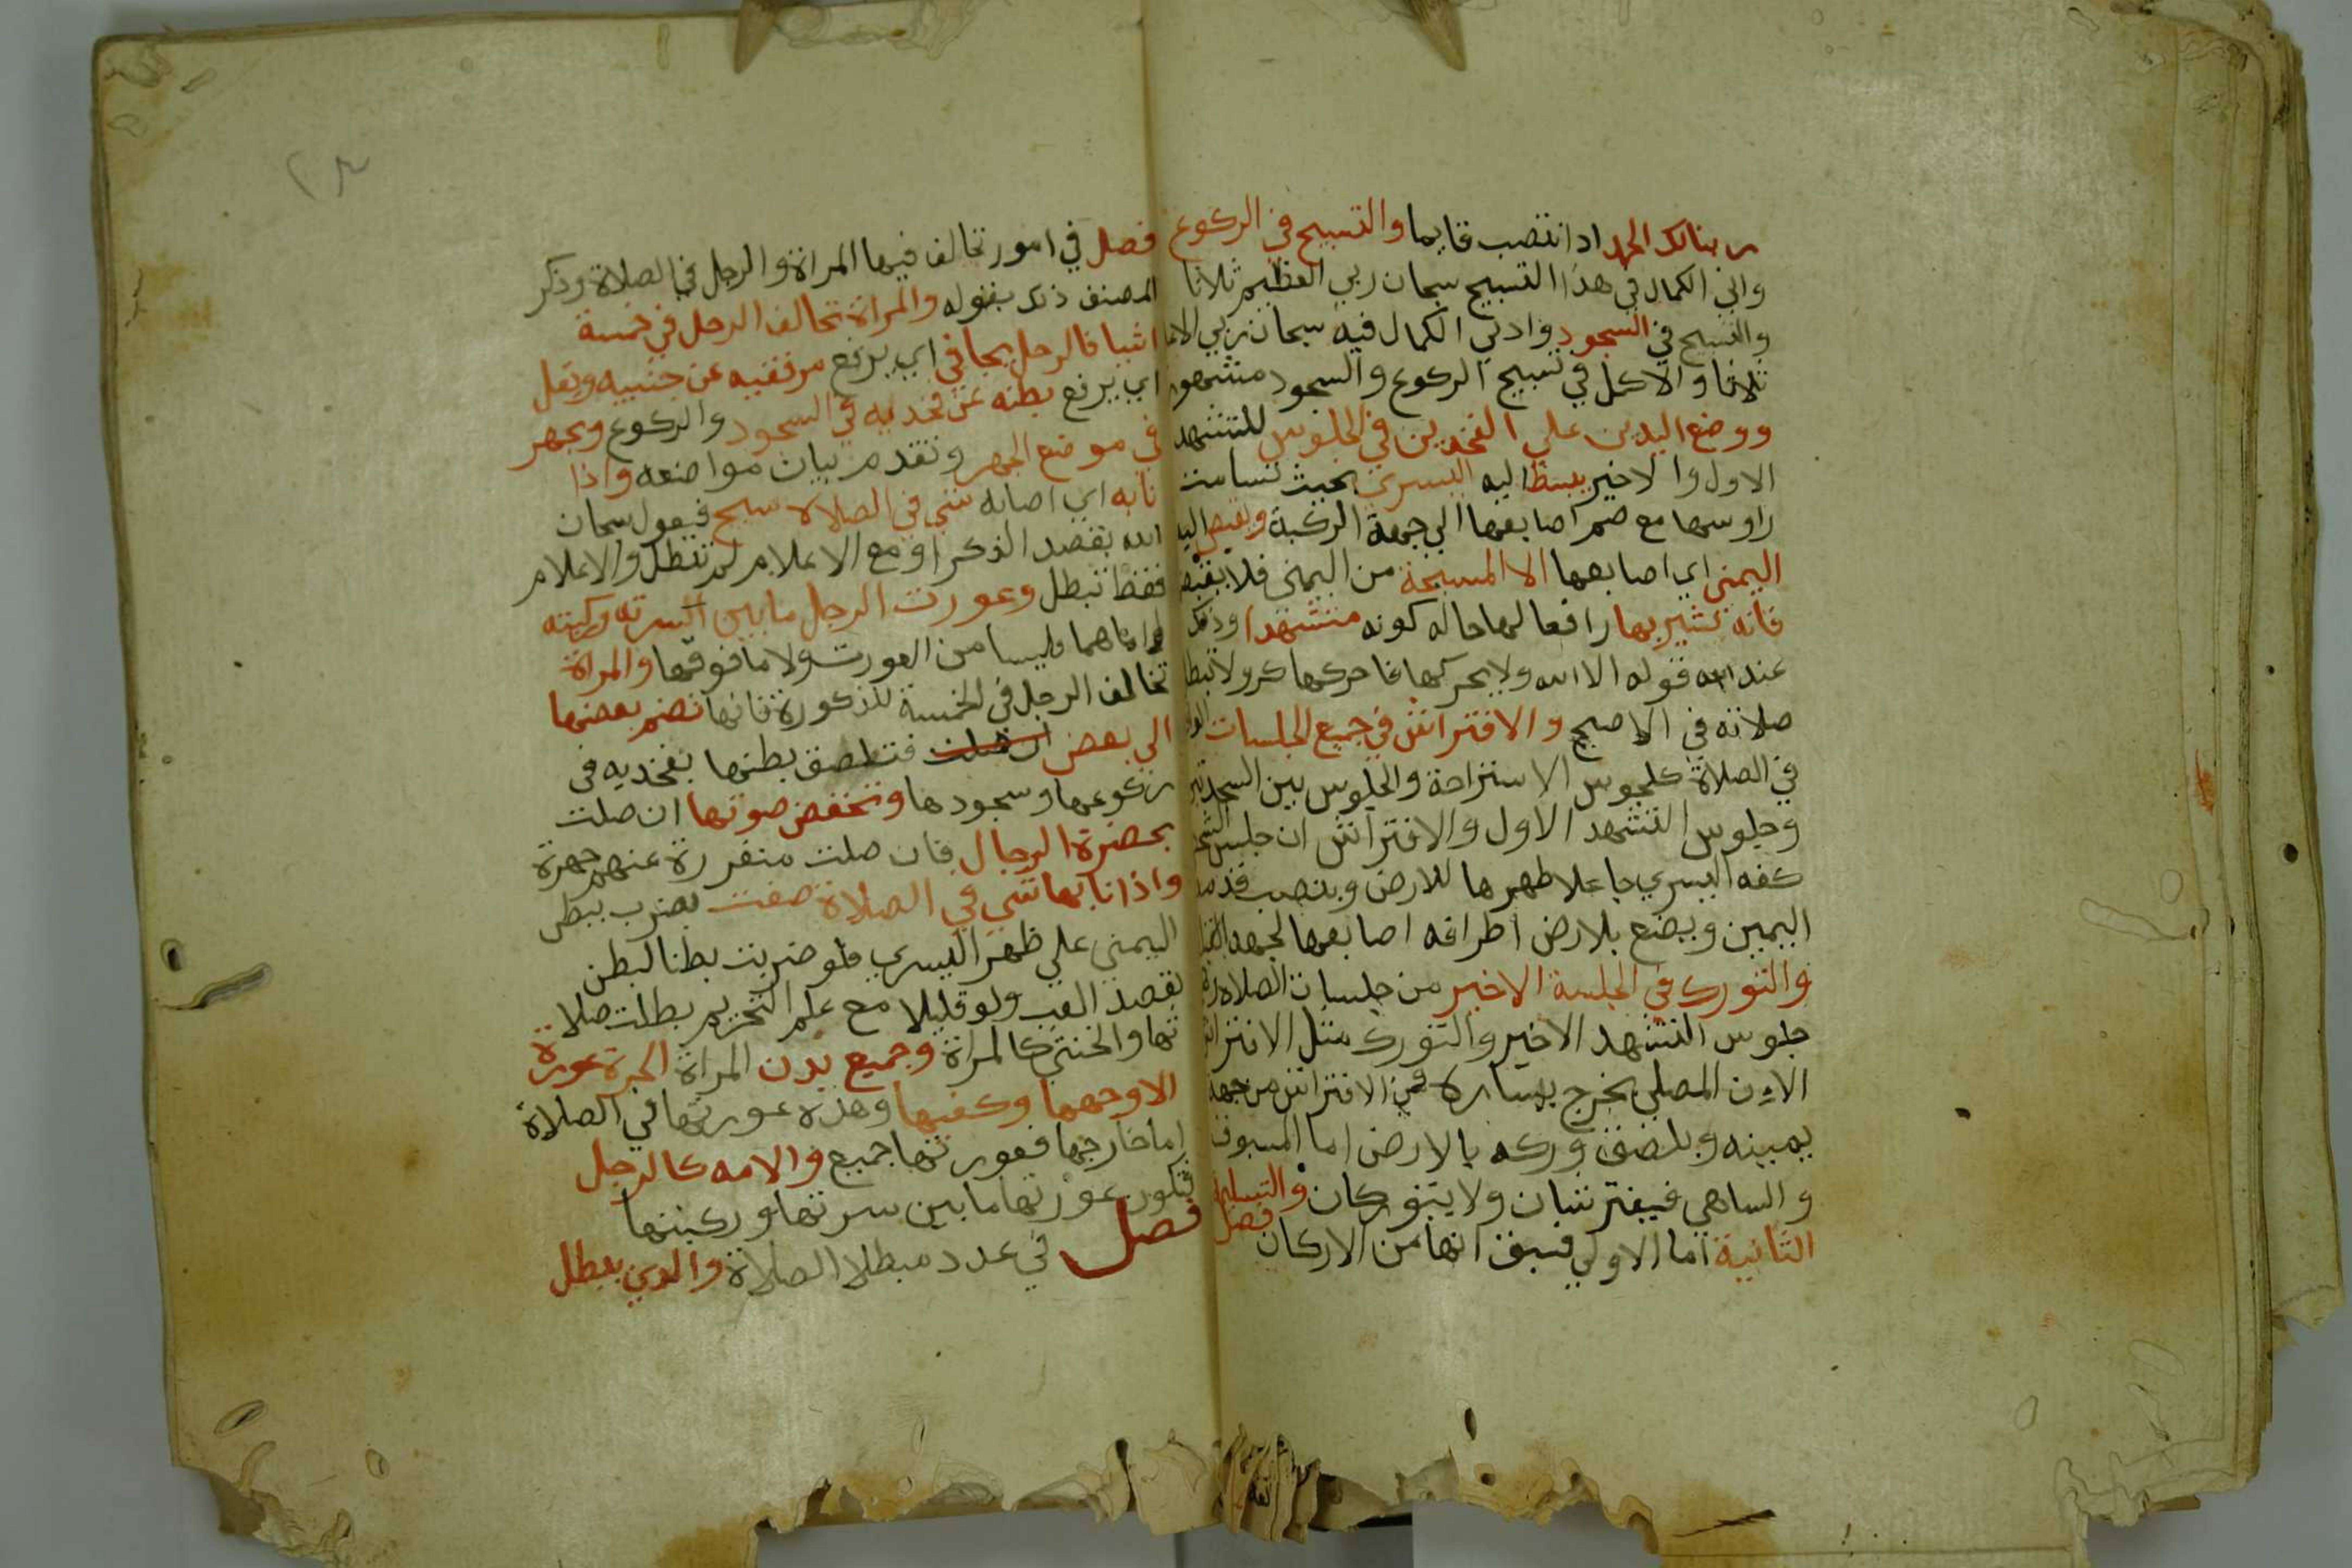 ربنا لك الحمد اذا انتصب قايما والتسبيح في الركوع
وادني الكمال في هذا التسبيح سبحان ربي العظيم ثلاثا
والتسبيح في السجود وادني الكمال فيه سبحان ربي الاعلا
ثلاثا والاكمل في تسبيح الركوع والسجود مشهور
ووضع اليدين علي الفخدين في الجلوس للتشهد
الاول والاخير يبسط اليد اليسري بحيث تسامت
راوسها مع ضم اصابعها الي جهة الركبة ويقبض اليد
اليمنى اي اصابعها الا المسبحة من اليمنى فلا يقبضها
فانه يشير بها رافعا لها حاله كونه متشهدا وذلك
عند قوله الا الله ولا يحركها فان حركها كره ولا تبطل
صلاته في الاصح والافتراش في جميع الجلسات
في الصلاة كجلوس الاستراحة والجلوس بين السجدتين
وجلوس التشهد الاول والافتراش ان يجلس
كعبه اليسري جاعلا ظهرها للارض وينصب قدمه
اليمين ويضع بالارض اطراف اصابعها لجهة القبلة
والتورك في الجلسة الاخير من جلسات الصلاة
جلوس التشهد الاخير والتورك مثل الافتراش
الا ان المصلي يخرج يساره في الافتراش من جهة
يمينه ويلصق وركه بالارض اما المسبوق
والساهي فيفترشان ولا يتوركان والتسليمة
فصل
الثانية اما الاولي فسبق انها من الاركان
٢٣
فصل في امور تخالف فيها المراة والرجل في الصلاة وذكر
المصنف ذلك بقوله والمراة تخالف الرجل في خمسة
اشيا فالرجل يجافي اي يرفع مرفقيه عن جنبيه ويقل
اي يرفع بطنه عن فخديه في السجود والركوع ويجهر
في موضع الجهر وتقدم بيان مواضعه واذا
نابه اي اصابه شي في الصلاة سبح فيقول سبحان
الله بقصد الذكر او مع الاعلام لم تبطل والاعلام
فقط تبطل وعورت الرجل ما بين سرته وركبته
اما هما فليسا من العورت ولا ما فوقها والمراة
تخالف الرجل في الخمسة المذكورة فانها تضم بعضها
الى بعض ان صلت فتلصق بطنها بفخديه في
ركوعها وسجودها وتخفض صوتها ان صلت
بحضرة الرجال فان صلت منفردة عنهم جهرة
واذا نابها شي في الصلاة صفت بضرب ببطن
اليمنى علي ظهر اليسري فلو ضربت بطنا لبطن
بقصد العب ولو قليلا مع علم التحريم بطلت صلا
تها والخنثي كالمراة وجميع بدن المراة الحرة عورة
الا وجهها وكفيها وهذه عورتها في الصلاة
اما خارجها فعورتها جميع والامه كالرجل
فتكون عورتها ما بين سرتها وركبتها
فصل في عدد مبطلا الصلاة والذي يبطل